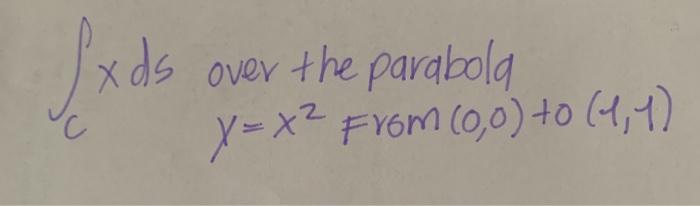 ∫_C x ds over the parabola
y = x² From (0,0) to (1,1)